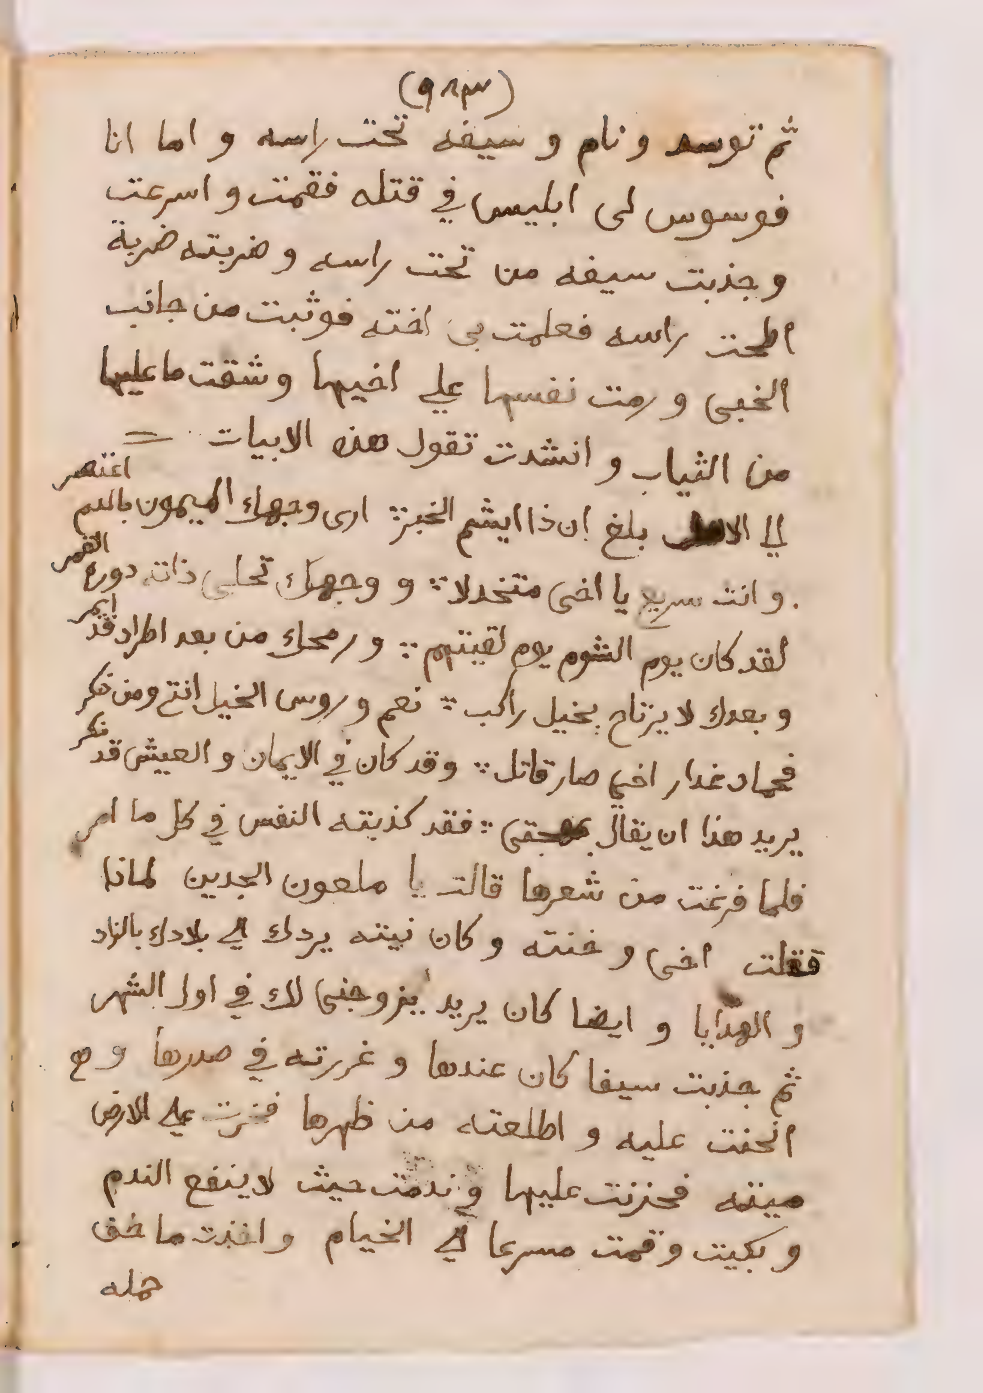 (٩٨٣)
ثم توسد و نام و سيفه تحت راسه و اما انا
فوسوس لى ابليس في قتله فقمت و اسرعت
و جذبت سيفه من تحت راسه و ضربته ضربة
اطحت راسه فعلمت بى اخته فوثبت من جانب
الخبى و رمت نفسها على اخيها و شقت ما عليها
من الثياب و انشدت تقول هذه الابيات =
الي بلغ ان ذا ايشم الخبر : ارى وجهك الميمون بالدم
و انت سريع يا اخى متخدلا : و وجهك تحلى ذاته دوره القمر
لقد كان يوم الشوم يوم لقيتهم : و رمحك من بعد اطراد قد
و بعدك لا يرتاح بخيل راكب : نعم و روس الخيل انتح ومن فكر
فحماد غدار اخي صار قاتل : وقد كان في الايمان و العيش قد نكر
يريد هذا ان يقال : فقد كذبته النفس في كل ما امر
فلما فرغت من شعرها قالت يا ملعون الجدين لماذا
فقلت اخى و خنته و كان نيته يردك الي بلادك بالزاد
و الهدايا و ايضا كان يريد يزوجنى لك في اول الشهر
ثم جذبت سيفا كان عندها و غررته في صدرها و
انحنت عليه و اطلعته من ظهرها فخرت على الارض
ميته فحزنت عليها و ندمت حيث لا ينفع الندم
و بكيت و قمت مسرعا الي الخيام و اخذت ما خف
حمله